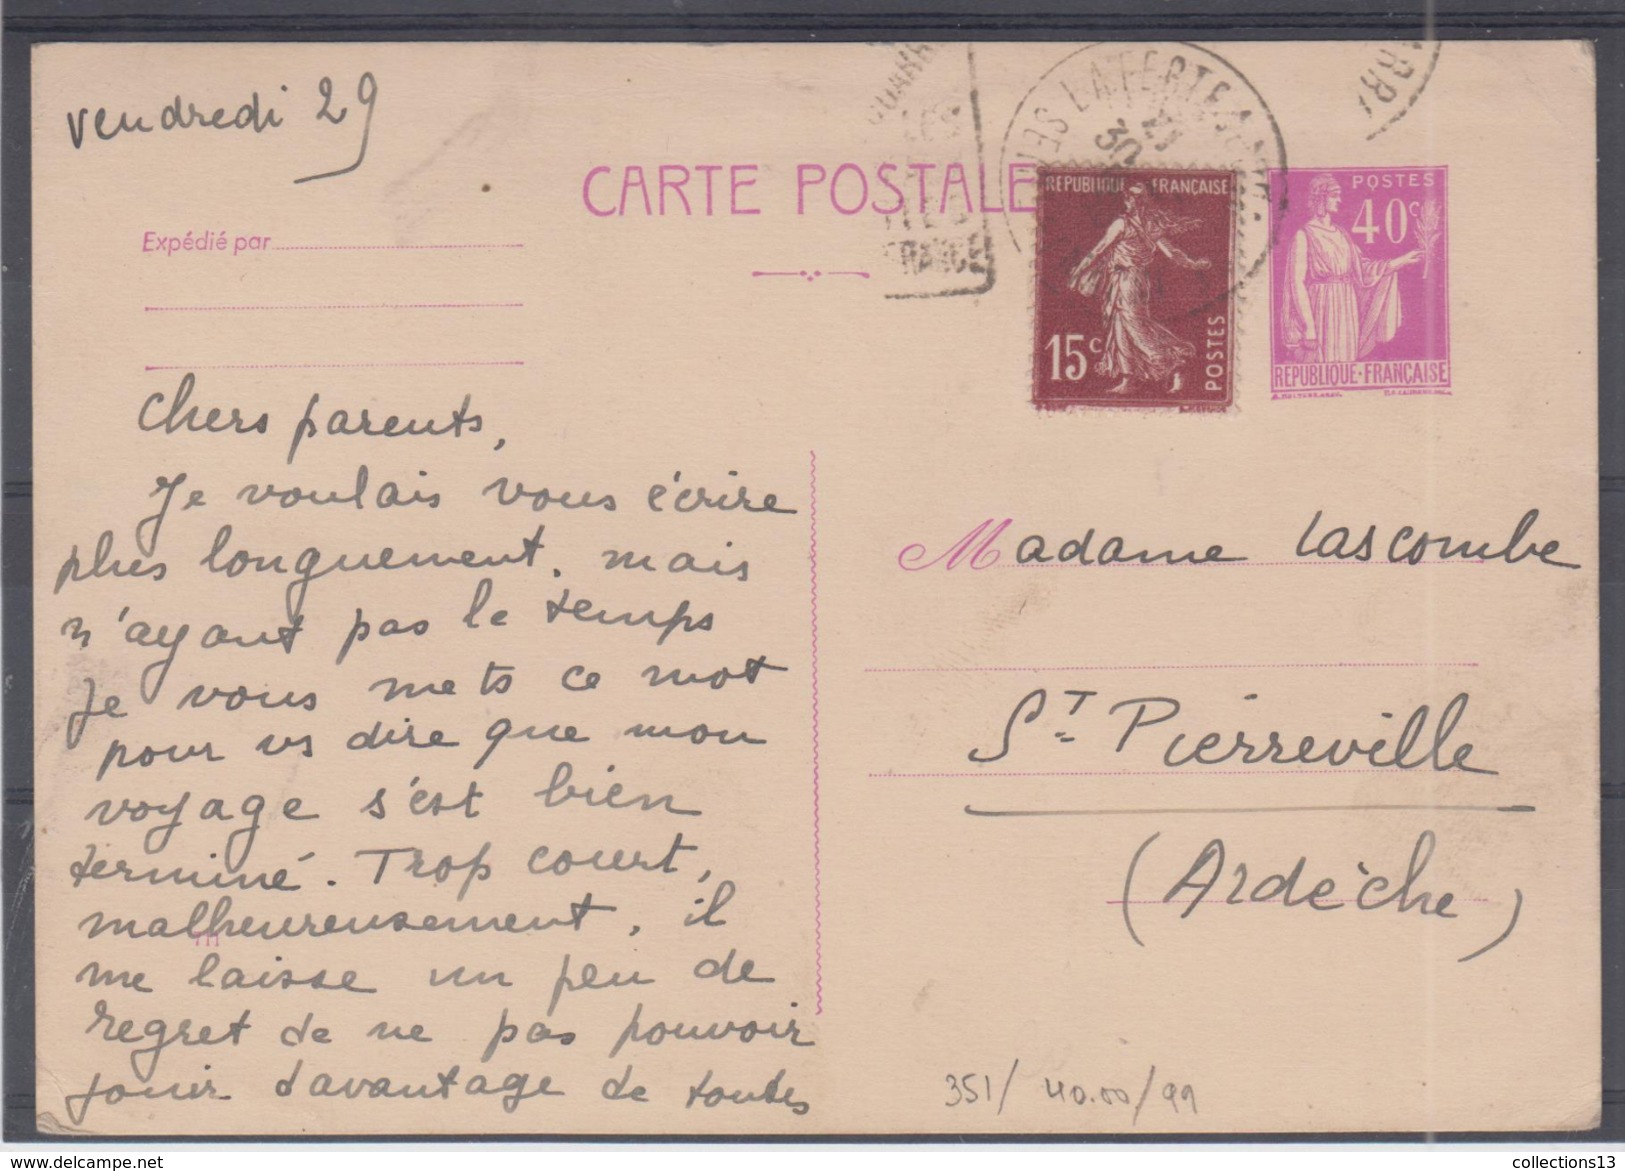 vendredi 29
CARTE POSTALE
Expédié par
Chers parents,
Je voulais vous écrire
plus longuement, mais
n'ayant pas le temps
je vous mets ce mot
pour vs dire que mon
voyage s'est bien
terminé. Trop court,
malheureusement, il
me laisse un peu de
regret de ne pas pouvoir
jouir davantage de toutes
FRANCE
LA FERTE
30
REPUBLIQUE FRANÇAISE
15c
POSTES
POSTES
40c
REPUBLIQUE·FRANÇAISE
Madame Lascombe
ST Pierreville
(Ardèche)
351/ 40.00/99
www.delcampe.net
collections13